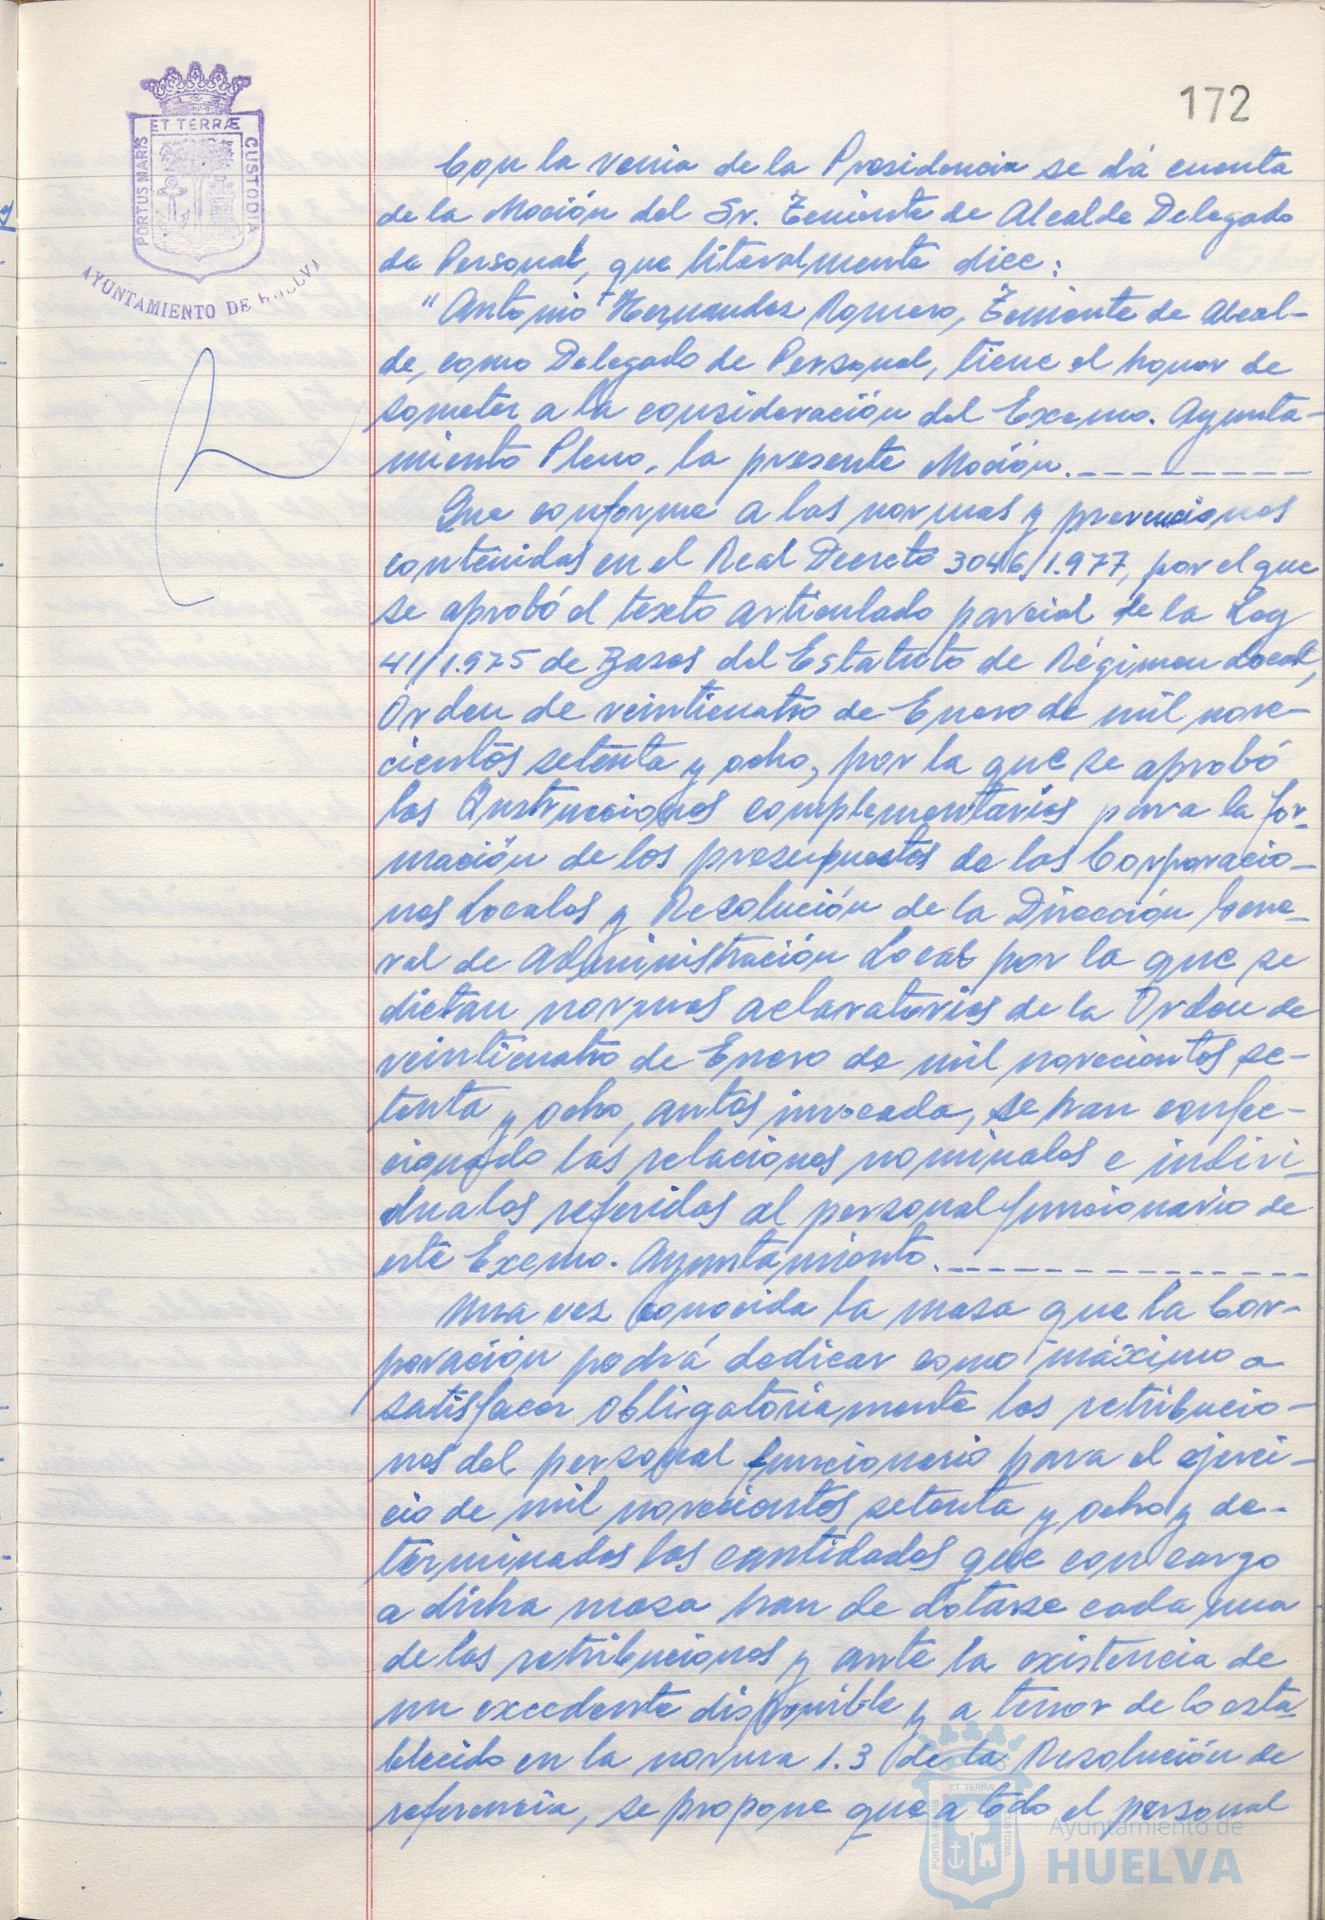 172
ET TERRÆ
PORTUS MARIS
CUSTODIA
AYUNTAMIENTO DE HUELVA
Con la venia de la Presidencia se dá cuenta
de la Moción del Sr. Teniente de Alcalde Delegado
de Personal, que literalmente dice:
"Antonio Hernandez Romero, Teniente de Alcal-
de, como Delegado de Personal, tiene el honor de
someter a la consideración del Excmo. Ayunta-
miento Pleno, la presente Moción.
Que conforme a las normas y prevenciones
contenidas en el Real Decreto 3046/1.977, por el que
se aprobó el texto articulado parcial de la Ley
41/1.975 de Bases del Estatuto de Régimen Local,
Orden de veinticuatro de Enero de mil nove-
cientos setenta y ocho, por la que se aprobó
las Instrucciones complementarias para la for-
mación de los presupuestos de las Corporacio-
nes Locales y Resolución de la Dirección Gene-
ral de Administración Local por la que se
dictan normas aclaratorias de la Orden de
veinticuatro de Enero de mil novecientos se-
tenta y ocho, antes invocada, se han confec-
cionado las relaciones nominales e indivi-
duales referidas al personal funcionario de
este Excmo. Ayuntamiento.
Una vez conocida la masa que la Cor-
poración podrá dedicar como máximo a
satisfacer obligatoriamente las retribucio-
nes del personal funcionario para el ejerci-
cio de mil novecientos setenta y ocho y de-
terminadas las cantidades que con cargo
a dicha masa han de dotarse cada una
de las retribuciones y ante la existencia de
un excedente disponible y a tenor de lo esta-
blecido en la norma 1.3 de la Resolución de
referencia, se propone que a todo el personal
ET TERRÆ
PORTUS MARIS
CUSTODIA
Ayuntamiento de
HUELVA